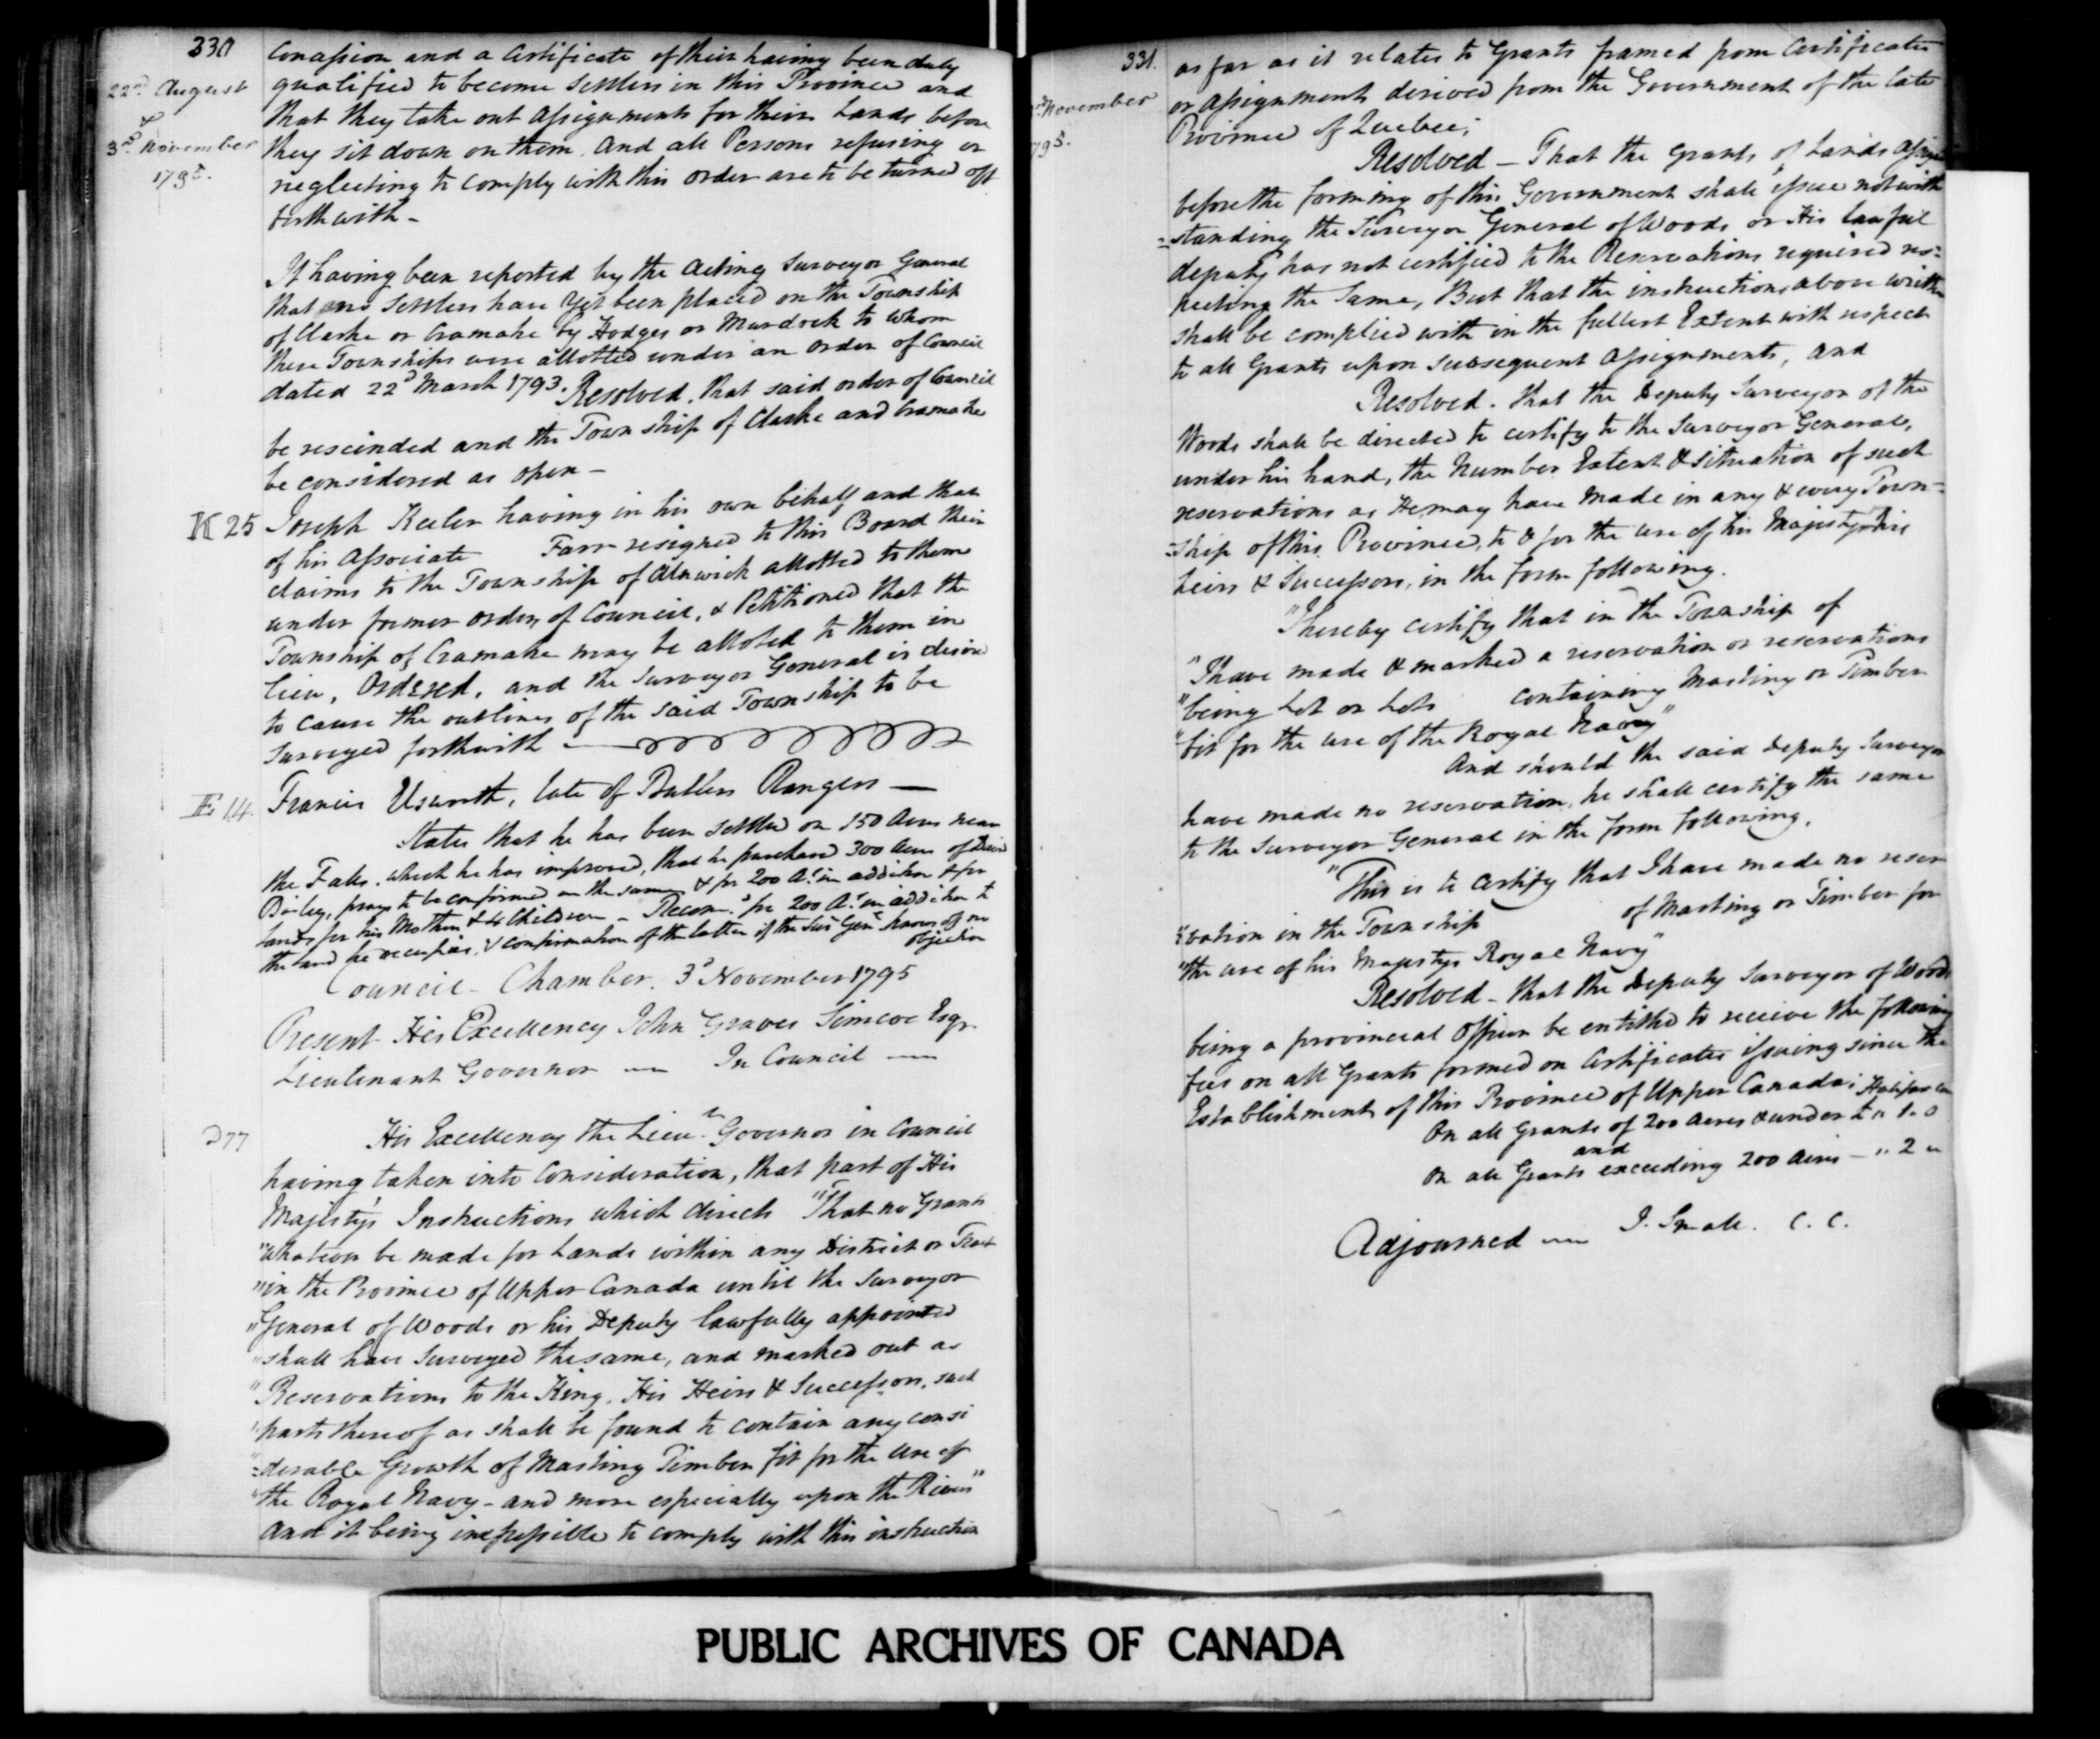 330
22nd August
&
3rd November
1795.
Concession and a Certificate of their having been duly
qualified to become Settlers in this Province and
that they take out Assignments for their Lands before
they sit down on them. And all Persons refusing or
neglecting to comply with this order are to be turned off
forthwith -
It having been reported by the Acting Surveyor General
that no Settlers have yet been placed on the Township
of Clarke or Cramahe by Hodges or Murdock to whom
these Townships were allotted under an order of Council
dated 22d March 1793. Resolved, that said order of Council
be rescinded and the Township of Clarke and Cramahe
be considered as open -
K 25 Joseph Keeler having in his own behalf and that
of his Associate Farr resigned to this Board their
claims to the Township of Alnwick allotted to them
under former orders of Council, & Petitioned that the
Township of Cramahe may be alloted to them in
lieu, Ordered, and the Surveyor General is desired
to cause the outlines of the said Township to be
surveyed forthwith
E 14. Francis Elsworth, late of Butlers Rangers —
States that he has been settled on 150 Acres near
the Falls, which he has improved, that he purchased 300 Acres of
Bailey, prays to be confirmed in the same & for 200 As. in addition & for
Lands for his Mother & 4 Children - Recomd. for 200 As. in addition to
the land he occupies, & confirmation of the latter if the Sur. Genl. knows of no
objection
Council Chamber. 3d November 1795
Present His Excellency John Graves Simcoe Esqr.
Lieutenant Governor — In Council —
D 77 His Excellency the Lieut. Governor in Council
having taken into Consideration, that part of His
Majesty's Instructions which directs "That no Grants
"whatever be made for Lands within any District or Tract
"in the Province of Upper Canada until the Surveyor
"General of Woods or his Deputy lawfully appointed
"shall have Surveyed the same, and marked out as
"Reservations to the King, His Heirs & Successors, such
"parts thereof as shall be found to contain any consi
"=derable Growth of Masting Timber fit for the use of
"the Royal Navy - and more especially upon the Rivers"
And it being impossible to comply with this instruction
331.
November
1795.
as far as it relates to Grants framed from Certificates
or Assignments derived from the Government of the late
Province of Quebec;
Resolved - That the Grants of Lands
before the forming of this Government shall issue notwith
=standing the Surveyor General of Woods or His lawful
deputy has not certified to the Reservations required res=
pecting the Same, But that the instructions above written
shall be complied with in the fullest Extent with respect
to all Grants upon subsequent Assignments, and
Resolved. That the Deputy Surveyor of the
Woods shall be directed to certify to the Surveyor General,
under his hand, the Number Extent & situation of such
reservations as He may have made in any & every Town=
=ship of this Province, to & for the use of his Majesty, his
heirs & Successors, in the form following.
"I hereby certify that in the Township of
"I have made & marked a reservation or reservations
"being Lot or Lots containing Masting or Timber
"fit for the use of the Royal Navy"
And should the said deputy Surveyor
have made no reservation, he shall certify the same
to the Surveyor General in the form following.
"This is to certify that I have made no reser
"vation in the Township of Masting or Timber for
"the use of his Majestys Royal Navy"
Resolved - that the Deputy Surveyor of Woods
being a provincial Officer be entitled to receive the following
fees on all Grants formed on Certificates issuing since the
Establishment of this Province of Upper Canada; Halifax
On all Grants of 200 Acres & under £ " 1 - 0
and
On all Grants exceeding 200 Acres — " 2 "
Adjourned — J. Small. C. C.
PUBLIC ARCHIVES OF CANADA